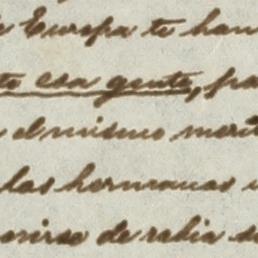 Europa te han
esa gente,
el mismo
las hermanas
de rabia